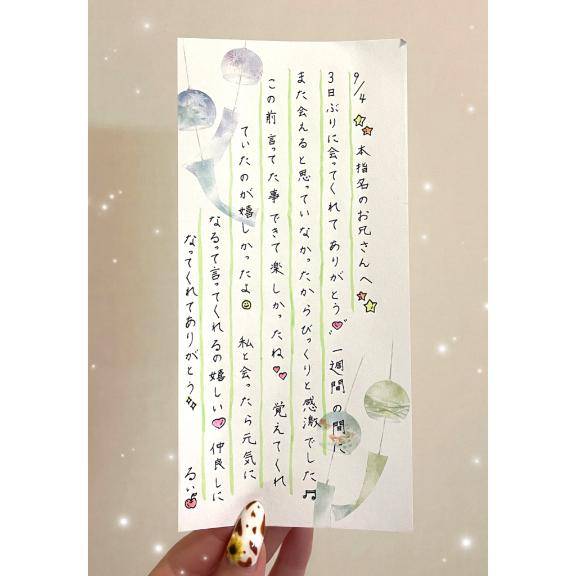 9/4 本指名のお兄さんへ
3日ぶりに会ってくれてありがとう 一週間の間に
また会えると思っていなかったからびっくりと感激でした♬
この前言ってた事できて楽しかったね 覚えてくれ
ていたのが嬉しかったよ 私と会ったら元気に
なるって言ってくれるの嬉しい 仲良しに
なってくれてありがとう
るい